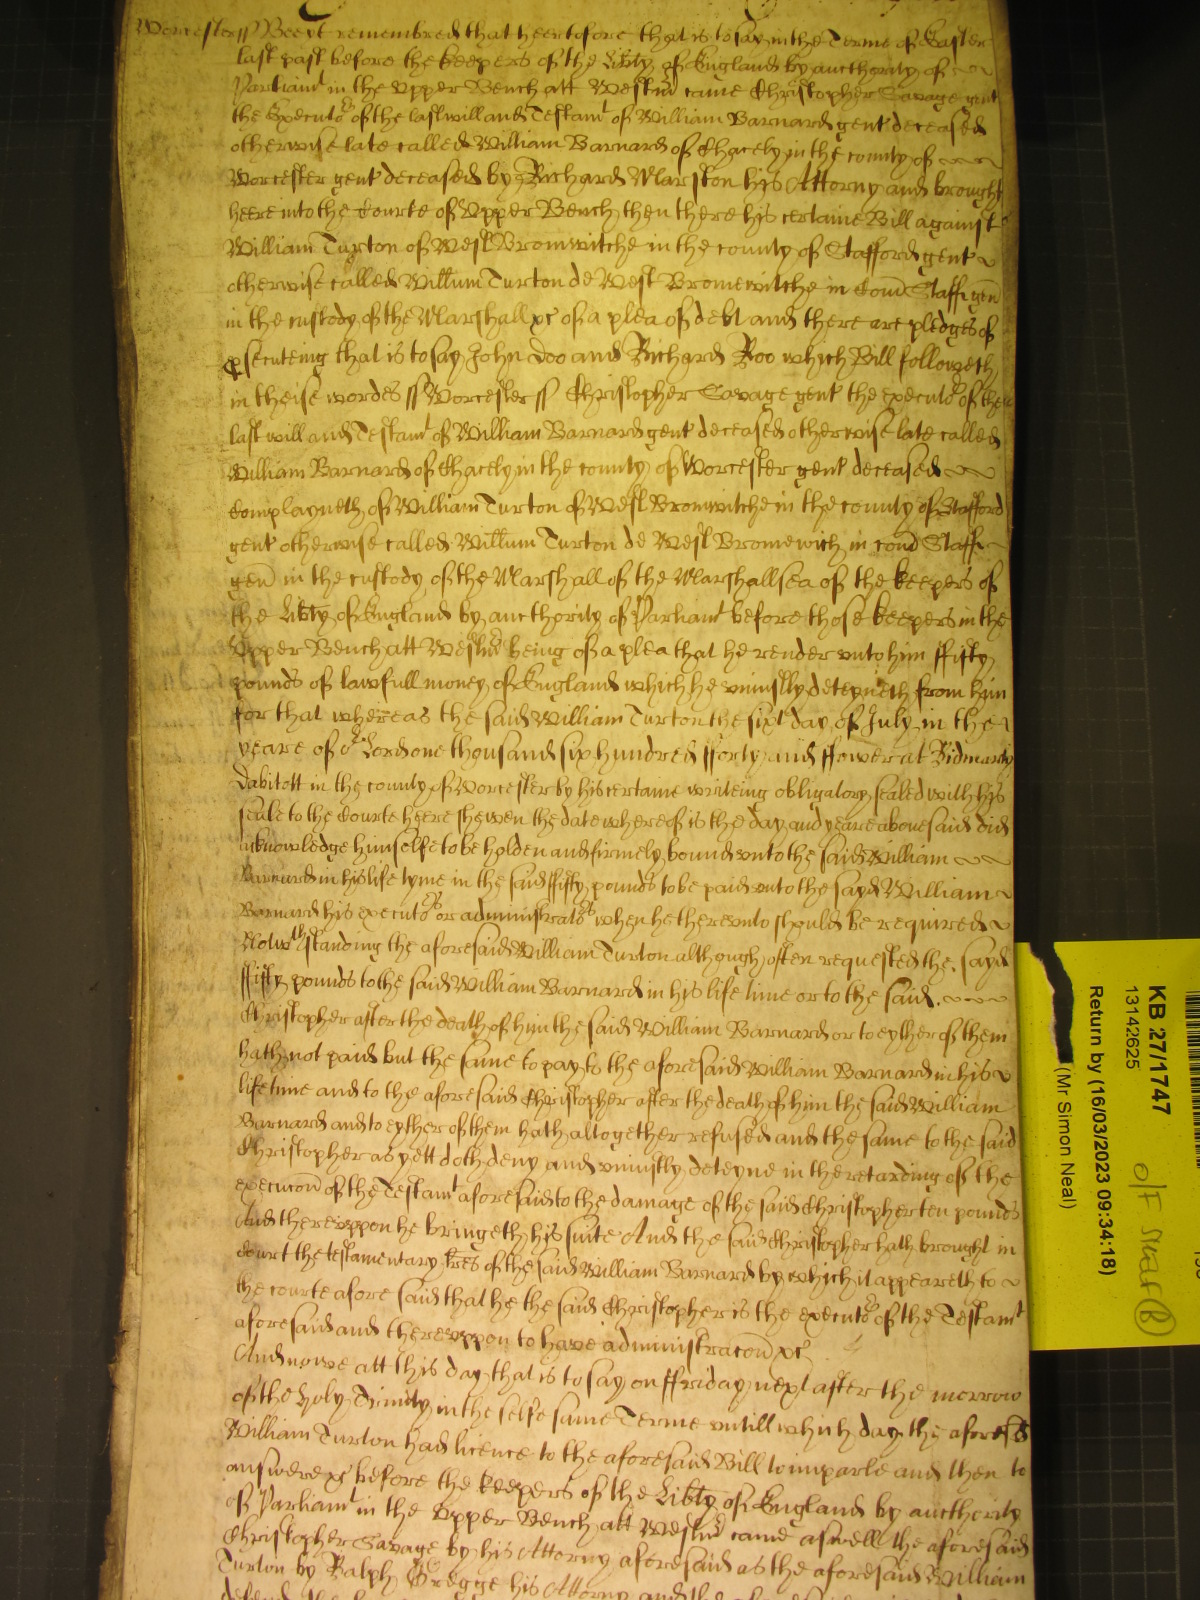 Worcester ss Bee yt remembred that heertofore that is to say in the Terme of Easter
last past before the keepers of the Libty of England by aucthority of
Parliamt in the Upper Bench att Westmr came Christopher Savage gent
the Executor of the last will and Testamt of William Barnard gent deceased
otherwise late called William Barnard of Chacely in the county of
Worcester gent deceased by Richard Marston his Attorny and brought
heere into the Courte of Upper Bench then there his certaine Bill against
William Turton of West Bromwitche in the county of Stafford gent
otherwise called Willum Turton de West Bromewitche in Com Staff gen
in the custody of the Marshall &c of a plea of debt and there are pledges of
psecuteing that is to say John Doo and Richard Roo which Bill followeth
in theise wordes ss Worcester ss Christopher Savage gent the executor of the
last will and Testamt of William Barnard gent deceased otherwise late called
William Barnard of Chacely in the county of Worcester gent deceased
Complayneth of William Turton of West Bromwitche in the county of Stafford
gent otherwise called Willum Turton de West Bromewich in Com Staff
gen in the custody of the Marshall of the Marshallsea of the keepers of
the Libty of England by aucthority of Parliamt before those keepers in the
Upper Bench att Westmr being of a plea that he render unto him ffifty
pounds of lawfull money of England which he uniustly deteyneth from him
for that whereas the said William Turton the sixt day of July in the
yeare of or Lord one thousand six hundred fforty and ffower at Bidmarly
Dabitott in the county of Worcester by his certaine writeing obligatory sealed with his
seale to the Courte heere shewen the date whereof is the day and yeare abovesaid did
acknowledge himselfe to be holden and firmely bound unto the said William
Barnard in his life tyme in the said ffifty pounds to be paid unto the sayd William
Barnard his executors or administrators when he thereunto should be required
Notwthstanding the aforesaid William Turton although often requested the sayd
ffifty pounds to the said William Barnard in his life time or to the said
Christopher after the death of him the said William Barnard or to eyther of them
hath not paid but the same to pay to the aforesaid William Barnard in his
life time and to the aforesaid Christopher after the death of him the said William
Barnard and to eyther of them hath altogether refused and the same to the said
Christopher as yett doth deny and uniustly deteyne in the retarding of the
execucon of the Testamt aforesaid to the damage of the said Christopher ten pounds
And thereuppon he bringeth his suite And the said Christopher hath brought in
Court the testamentary lres of the said William Barnard by which it appeareth to
the courte aforesaid that he the said Christopher is the executor of the Testamt
aforesaid and thereuppon to have administracon &c
And nowe att this day that is to say on ffriday next after the morrow
of the Holy Trinity in the selfe same Terme untill which day the aforesd
William Turton had licence to the aforesaid Bill to imparle and then to
answere &c before the keepers of the Libty of England by aucthority
of Parliamt in the Upper Bench att Westmr came aswell the aforesaid
Christopher Savage by his Attorny aforesaid as the aforesaid William
Turton by Ralph Gregge his Attorny and the
KB 27/1747
13142625
Return by (16/03/2023 09:34:18)
(Mr Simon Neal)
O/F